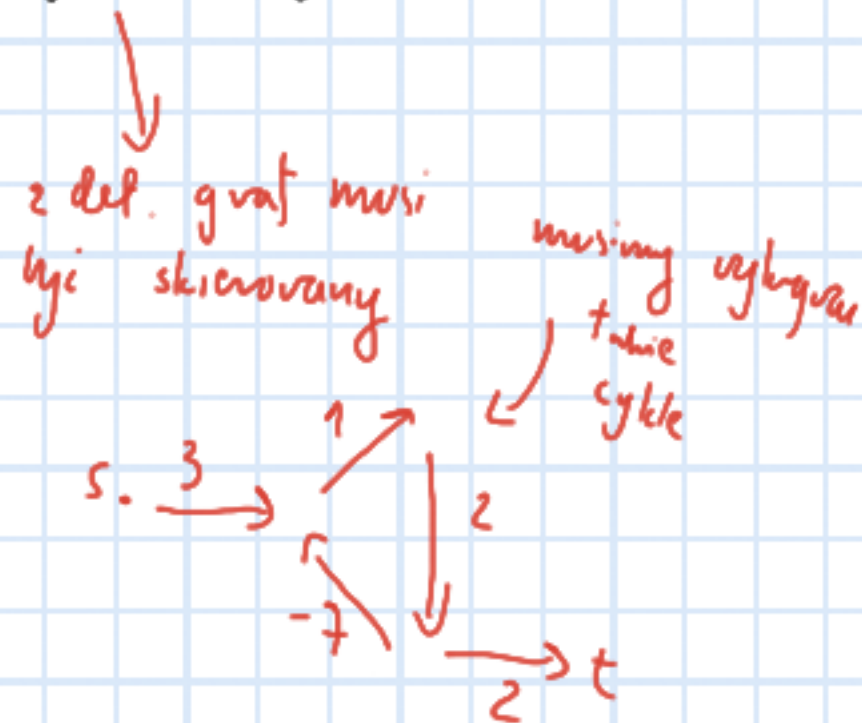 z def. graf musi
być skierowany
musimy
takie
cykle
1
s. 3
2
-7
t
2